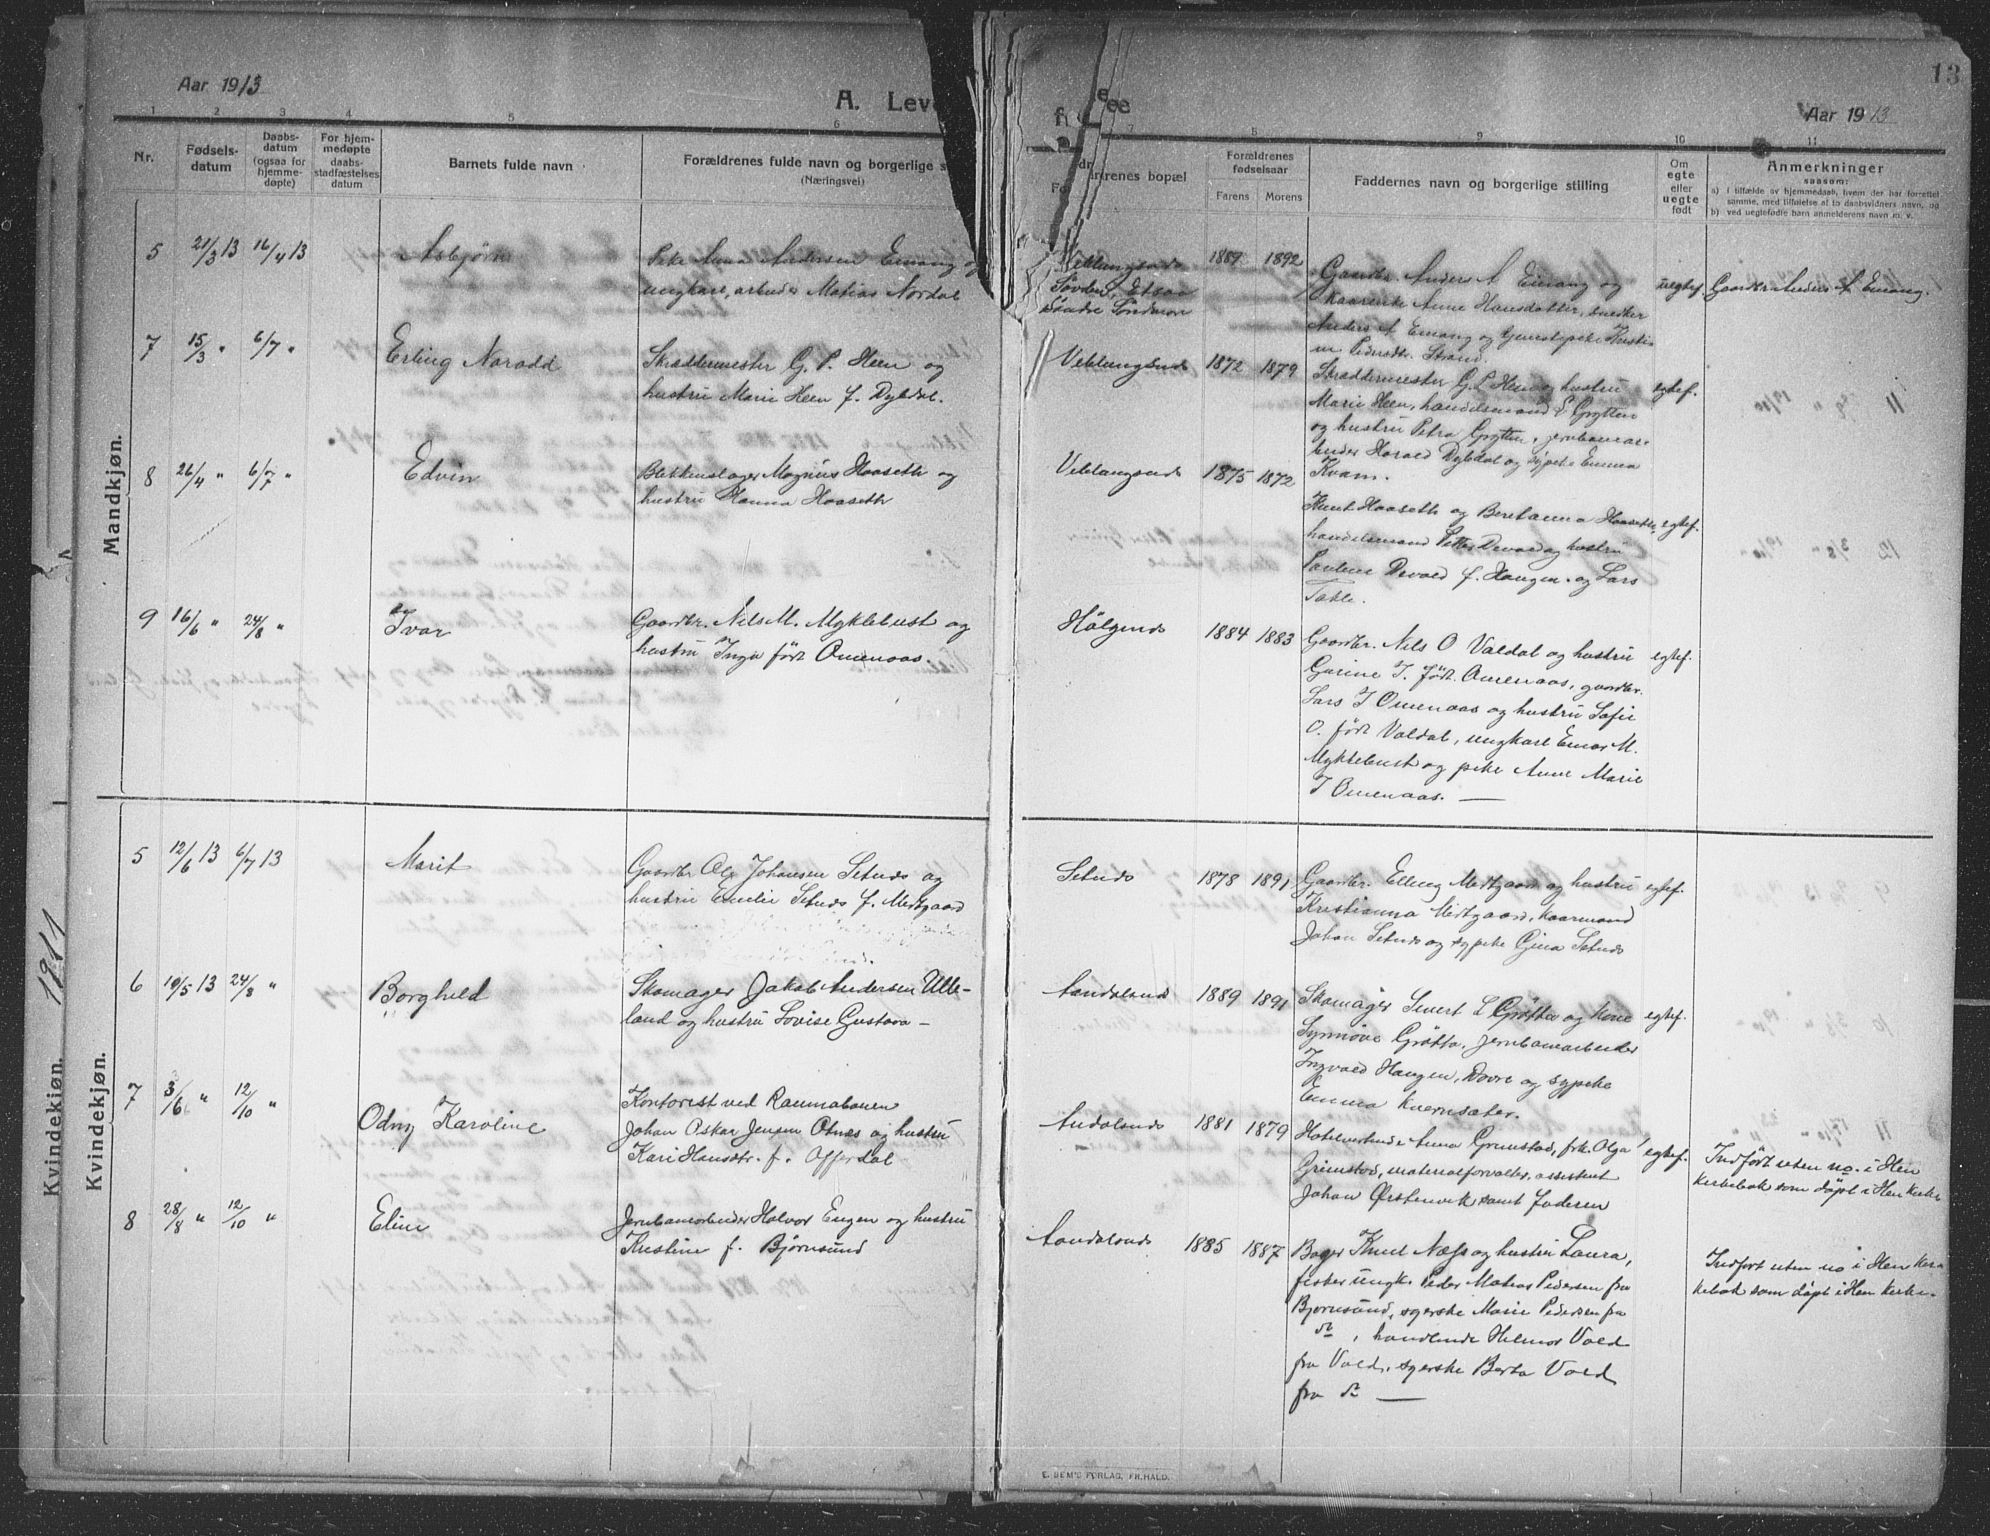 Aar 1913
A. Leve
Aar 1913
13
1 2 3 4 5 6 7 8 9 10 11
Nr.
Fødsels-
datum
Daabs-
datum
(ogsaa for
hjemme-
døpte)
For hjem-
medøpte
daabs-
stadfæstelses
datum
Barnets fulde navn
Forældrenes fulde navn og borgerlige s
(Næringsvei)
Forældrenes
fødselsaar
Farens Morens
Faddernes navn og borgerlige stilling
Om
egte
eller
uegte
født
Anmerkninger
saasom:
a) i tilfælde av hjemmedaab, hvem der har forrettet
samme, med tilføielse af to daabsvidners navn, og
b) ved uegtefødte barn anmelderens navn m. v.
Mandkjøn.
5 21/3 13 16/4 13 Asbjørn
Pike Anna Andersen Emang
ungkare, arbeider Matias Nordal
1889 1892
Gaardbr. Anders A Emang og
kaarenke Anne Hansdatter, snedker
Anders A Emang og tjenestepike
Pedersdtr. Strand.
uegtef. Gaardbr Anders A Emang.
7 15/3 " 6/7 " Erling Narodd
Skræddermester G. P. Heen og
hustru Marie Heen f. Dybdal.
Veblungsnæs 1872 1879
Skræddermester G. P. Heen og hustru
Marie Heen, handelsmand E. Grytten
og hustru Petra Grytten, jernbanear-
beider Harald Dybdal og sypike Emma
Kvam.
egtef.
8 26/4 " 6/7 " Edvin
Blikkenslager Magnus Haaseth og
hustru Hanna Haaseth
Veblungsnds 1875 1872
Knut Haaseth og Beretanna Haaseth,
handelsmand Petter Devold og hustru
Pauline Devold f. Haugen. og Lars
Takle.
egtef.
9 16/6 " 24/8 " Ivar
Gaardbr. Nils M. Myklebust og
hustru Inga født Omenaas.
Hölgends 1884 1883
Gaardbr. Nils O Valdal og hustru
Gurine I. født Omenaas, gaardbr.
Lars I Omenaas og hustru Sofie
O. født Valdal, ungkarl Einar M.
Myklebust og pike Anne Marie
I Omenaas. —
egtef.
1911
Kvindekjøn.
Kvindekjøn.
5 12/6 13 6/7 13 Marit
Gaardbr Ole Johansen Setnds og
hustru Emilie Setnds f. Midtgaard
Setnds 1878 1891
Gaardbr. Elling Midtgaard og hustru
Kristianna Midtgaard, kaarmand
Johan Setnds og sypike Gina Setnds
egtef.
6 19/5 13 24/8 " Borghild
Skomager Jakob Andersen Ulle-
land og hustru Lovise Gustava —
Aandalsnds 1889 1891
Skomager Sivert L Grötta og kone
Synnöve Grötta, jernbanearbeider
Ingvald Haugen, Dovre og sypike
Emma Kvernsæter.
egtef.
7 3/6 " 12/10 " Odny Karoline
Kontorist ved Raumabanen
Johan Oskar Jensen Otnes og hustru
Kari Hansdtr. f. Offerdal
Andalsnds 1881 1879
Hotelvertinde Anna Grimstad, frk. Olga
Grimstad, materialforvalter, assistent
Johan Ørstenvik samt faderen
egtef.
Indført uten no. i Hen
kirkebok som døpt i Hen kirke
8 28/8 " 12/10 " Eline
Jernbanearbeider Halvor Engen og hustru
Kristine f. Bjørnsund
Aandalsnds 1885 1887
Bager Knut Næss og hustru Laura,
fisker ungk. Peder Matias Pedersen fra
Bjørnsund, syerske Marie Pedersen fra
do , handlende Hilmar Vold
fra Vold, syerske Berta Vold
fra do —
Indført uten no i Hen kir-
kebok som døpt i Hen kirke.
E. SEM'S FORLAG, FR.HALD.